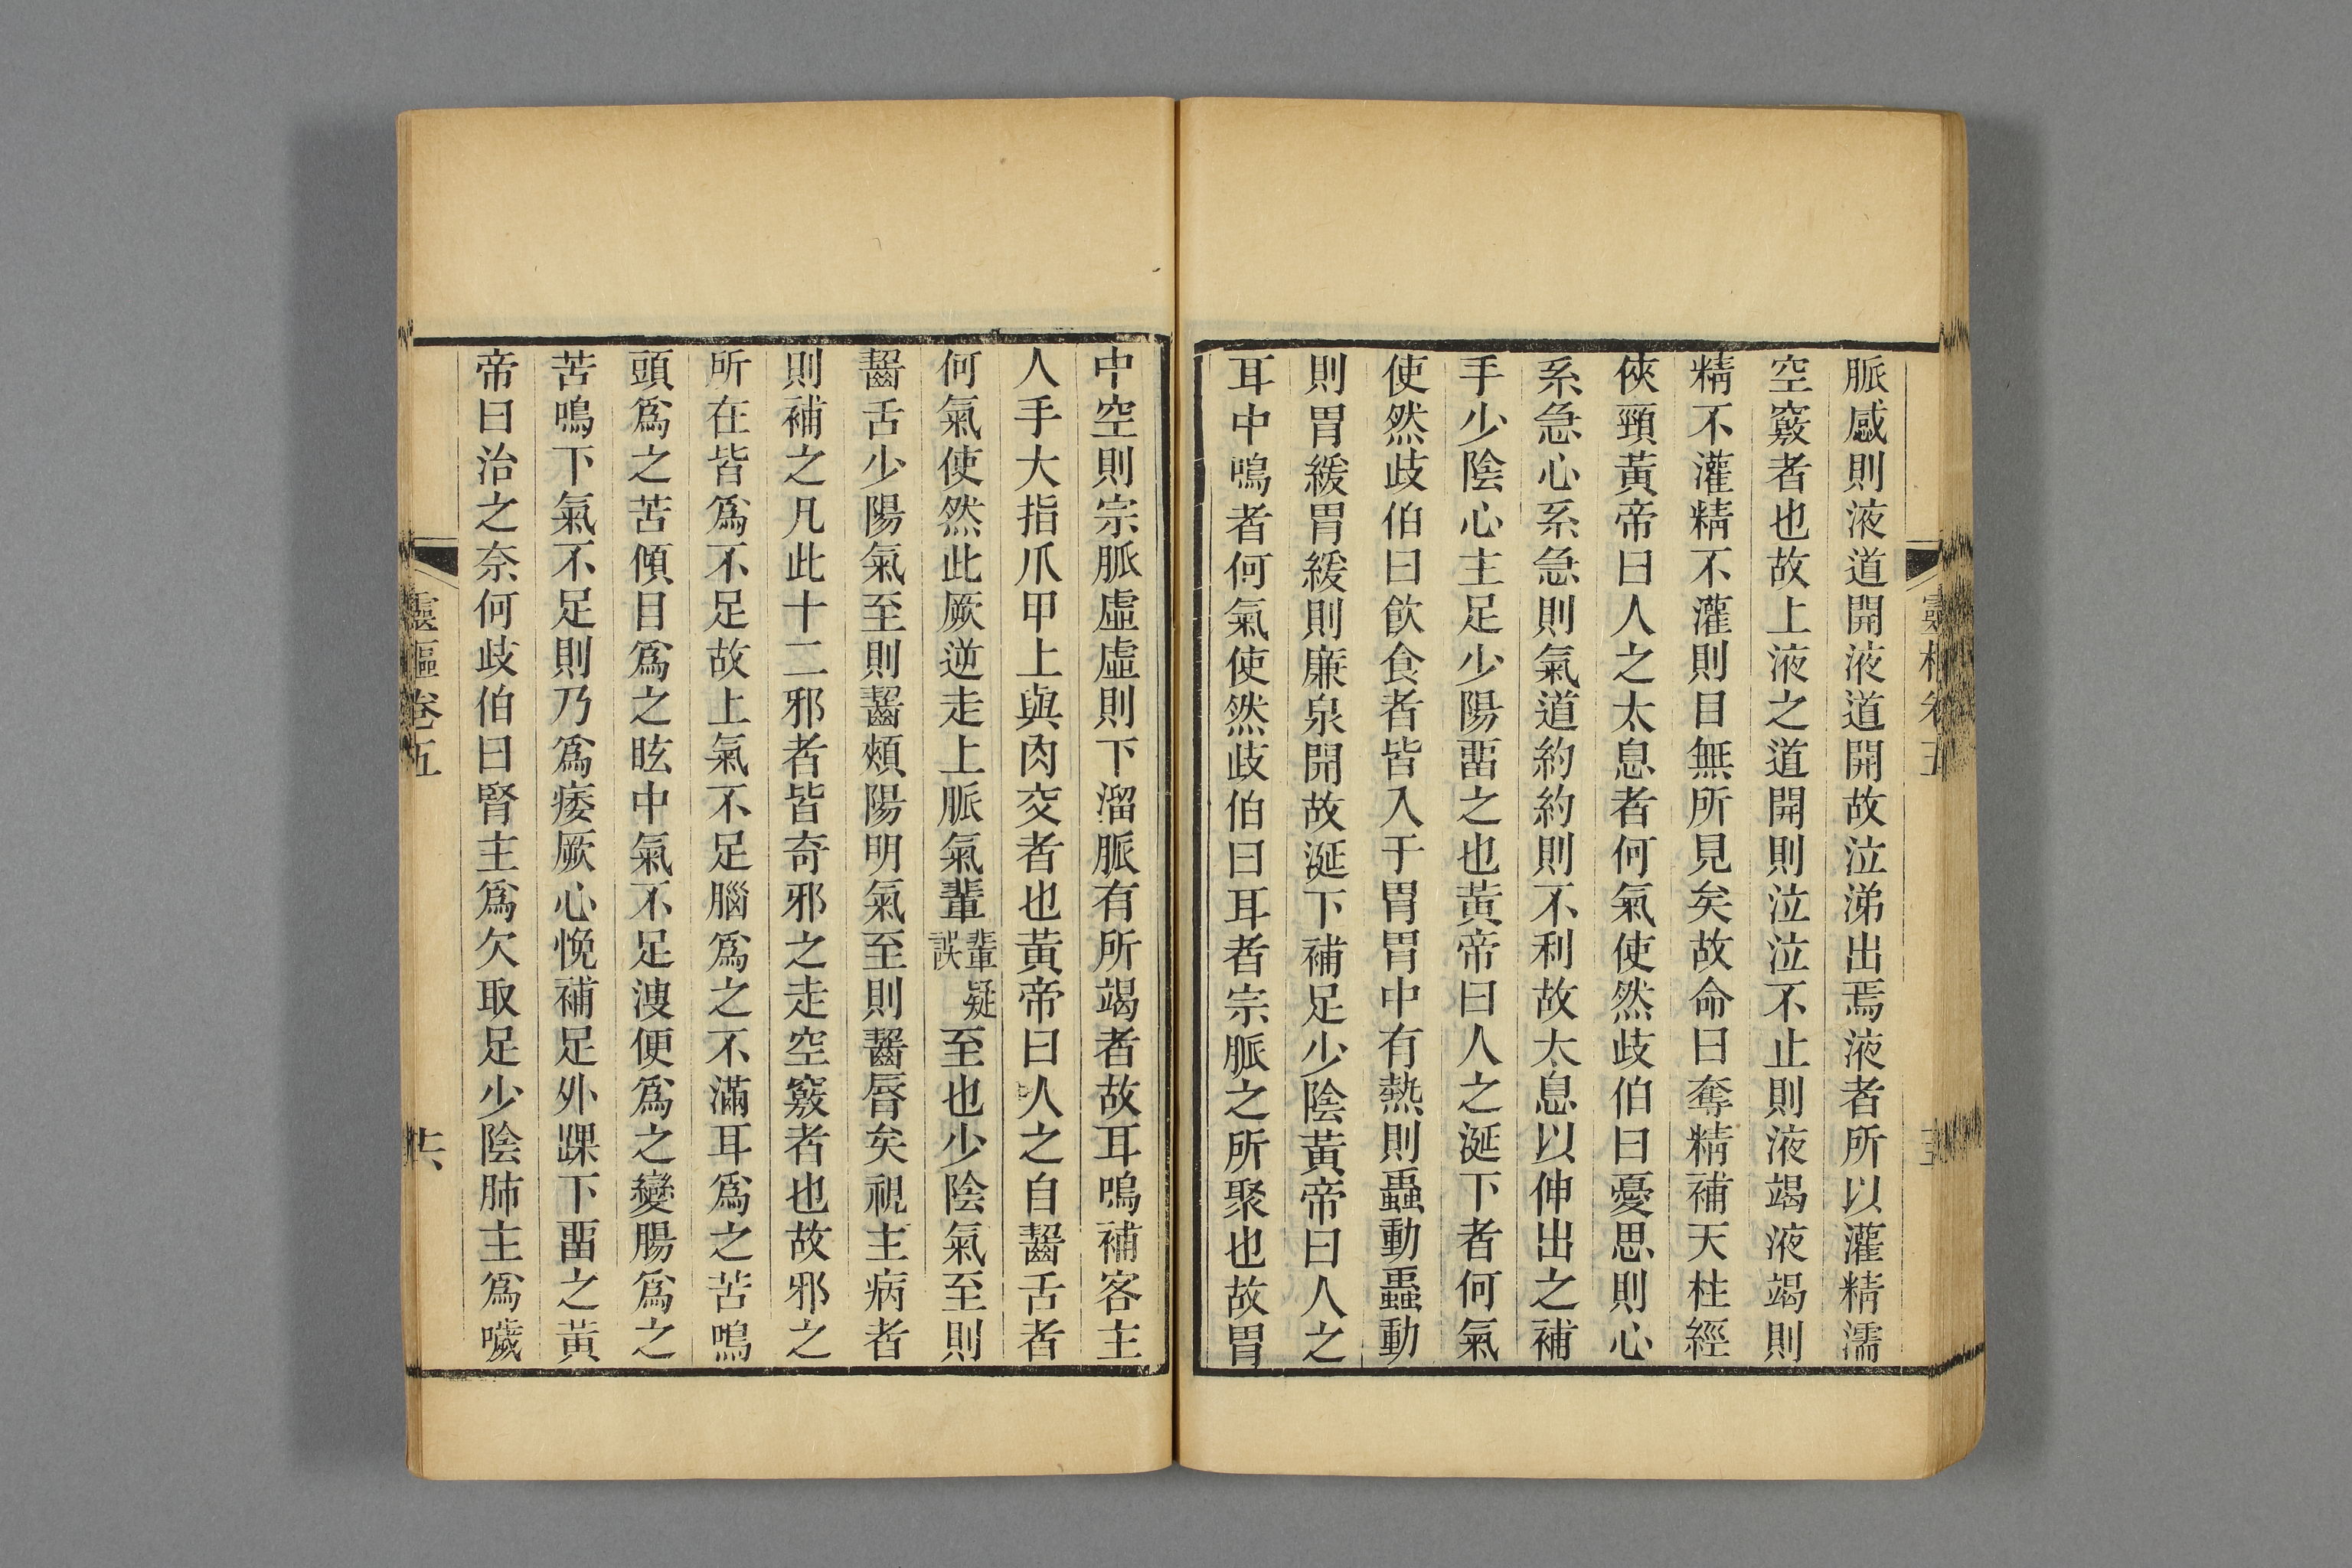 脈感則液道開液道開故泣涕出焉液者所以灌精濡
空竅者也故上液之道開則泣泣不止則液竭液竭則
精不灌精不灌則目無所見矣故命曰奪精補天柱經
俠頸黃帝曰人之太息者何氣使然歧伯曰憂思則心
系急心系急則氣道約約則不利故太息以伸出之補
手少陰心主足少陽畱之也黃帝曰人之涎下者何氣
使然歧伯曰飲食者皆入于胃胃中有熱則蟲動蟲動
則胃緩胃緩則廉泉開故涎下補足少陰黃帝曰人之
耳中鳴者何氣使然歧伯曰耳者宗脈之所聚也故胃
中空則宗脈虛虛則下溜脈有所竭者故耳鳴補客主
人手大指爪甲上與肉交者也黃帝曰人之自齧舌者
何氣使然此厥逆走上脈氣輩輩疑誤至也少陰氣至則
齧舌少陽氣至則齧頰陽明氣至則齧脣矣視主病者
則補之凡此十二邪者皆奇邪之走空竅者也故邪之
所在皆爲不足故上氣不足腦爲之不滿耳爲之苦鳴
頭爲之苦傾目爲之眩中氣不足溲便爲之變腸爲之
苦鳴下氣不足則乃爲痿厥心悗補足外踝下畱之黃
帝曰治之奈何歧伯曰腎主爲欠取足少陰肺主爲噦
靈樞卷五